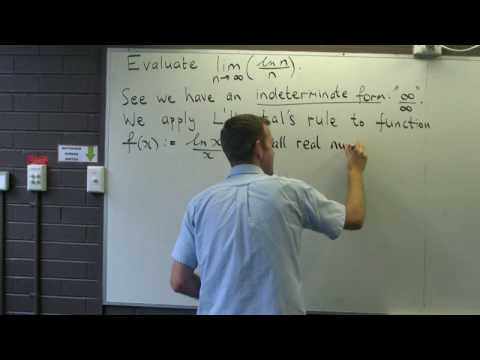 Evaluate lim n→∞ (ln n / n).
See we have an indeterminate form "∞/∞".
We apply L' tal's rule to function
f(x) := ln x / x all real nu